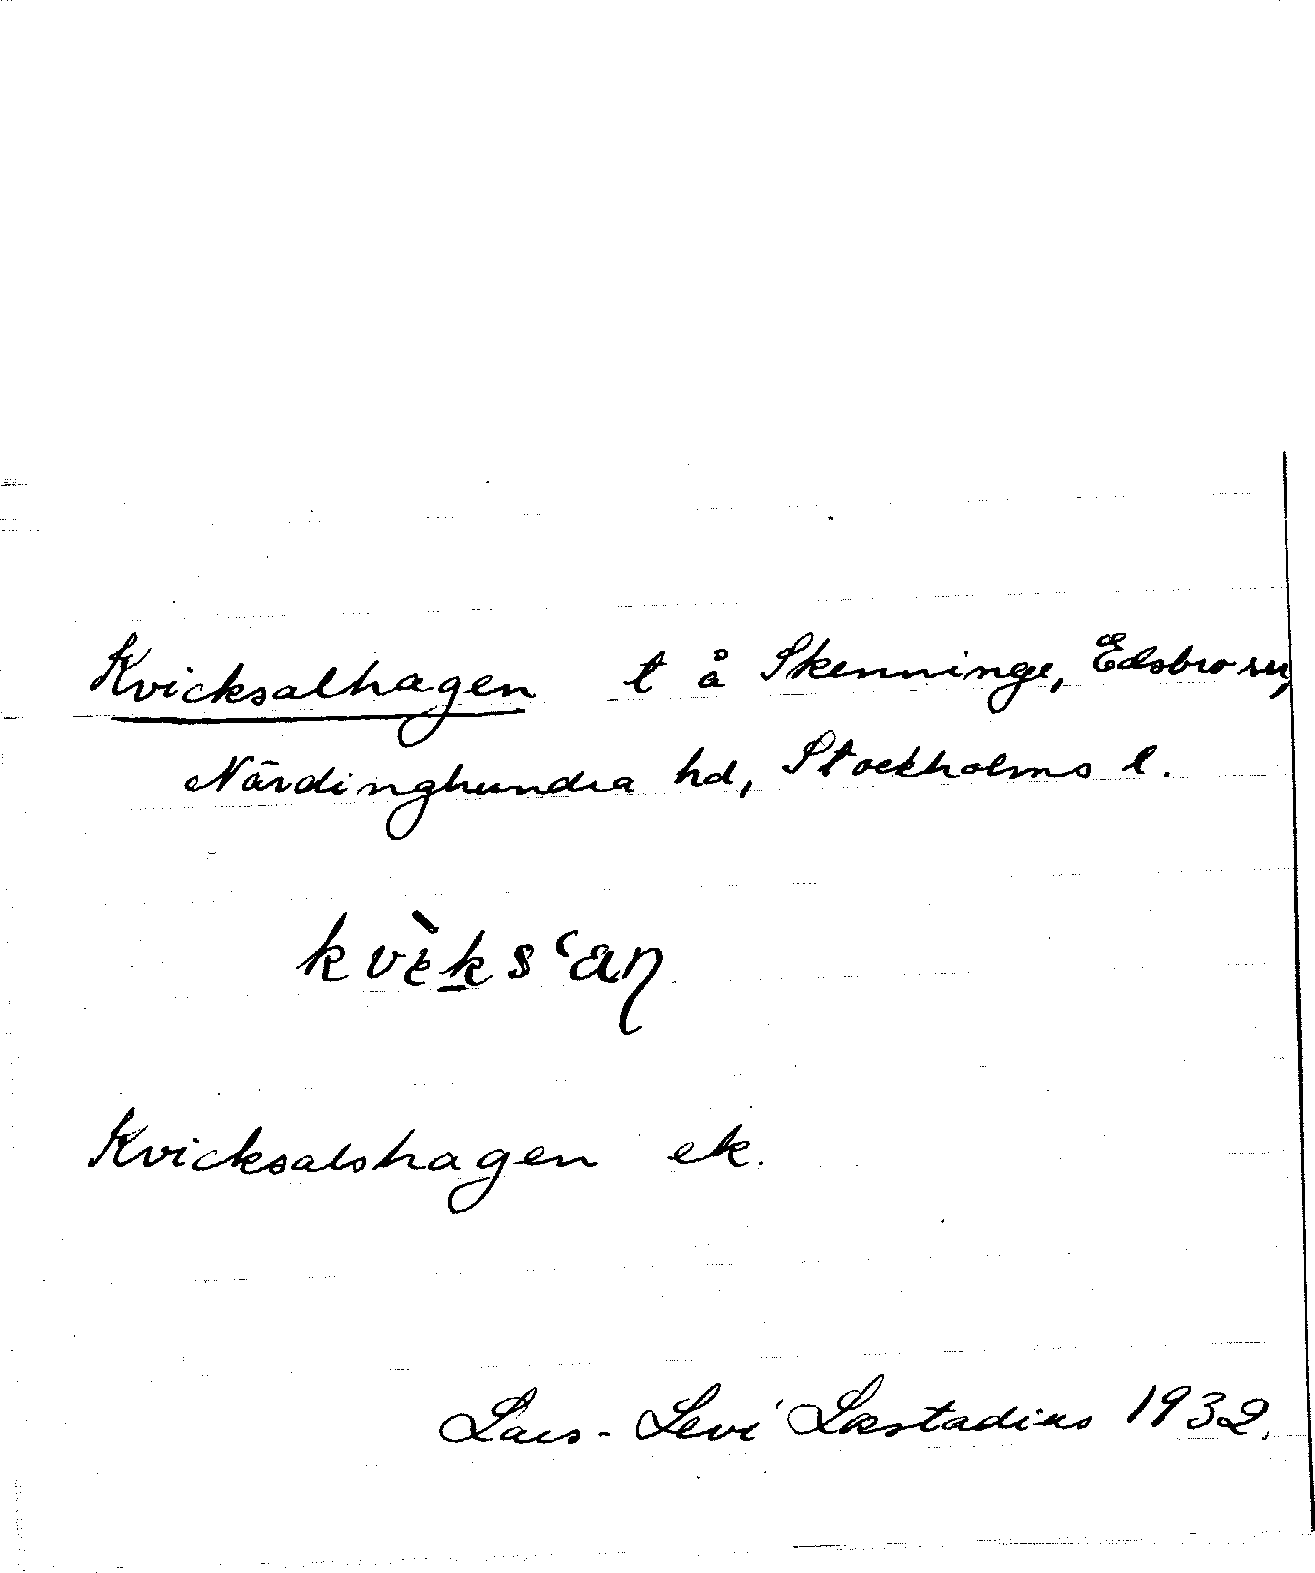 Kvicksalhagen t å Skenninge, Edsbro sn,
Närdinghundra hd, Stockholms l.
kvὲksʿaŋ
Kvicksalshagen ek.
Lars-Levi Læstadius 1932.